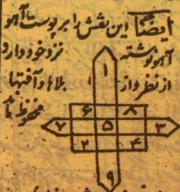 ایضاً این نقش را بر پوست آهو
نوشته نزد خود دارد
از نظر و از بلاها و آفتها
محفوظ ماند
۱
۶ ۸
۷ ۵ ۳
۲ ۴
۹